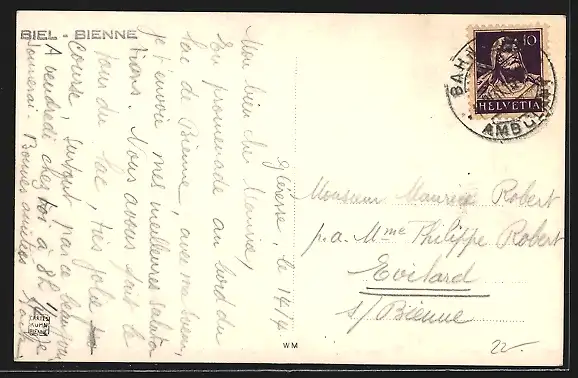 BIEL - BIENNE
Gléresse, le 14/4
Mon bien cher Maurice,
En promenade au bord du
lac de Bienne, avec ma soeur,
je t'envoie mes meilleures saluta-
tions. Nous avons fait le
tour du lac, très jolie
course, surtout parce beau
A vendredi chez toi à 8h 1/4 je
donnerai. Bonnes amitiés
10
HELVETIA
BAHN
AMBULANT
Monsieur Maurice Robert
p.a. Mme Philippe Robert
Evilard
s/Bienne
22-
WM
KUHN
BIENNE